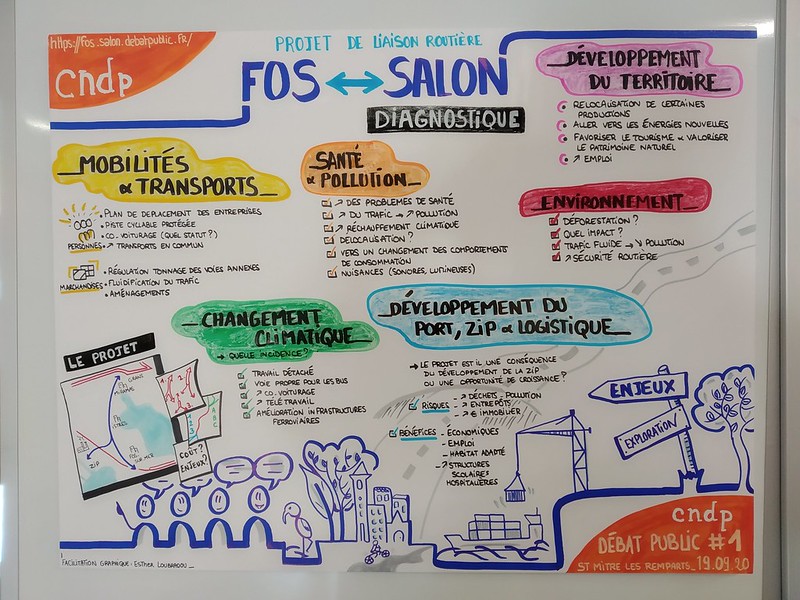 https://fos.salon.debatpublic.fr/
cndp
PROJET DE LIAISON ROUTIÈRE
FOS ↔ SALON
DIAGNOSTIQUE
DÉVELOPPEMENT
DU TERRITOIRE
RELOCALISATION DE CERTAINES
PRODUCTIONS
ALLER VERS LES ÉNERGIES NOUVELLES
FAVORISER LE TOURISME & VALORISER
LE PATRIMOINE NATUREL
↗ EMPLOI
MOBILITÉS
& TRANSPORTS
PERSONNES
• PLAN DE DEPLACEMENT DES ENTREPRISES
• PISTE CYCLABLE PROTÉGÉE
• CO-VOITURAGE (QUEL STATUT?)
• ↗ TRANSPORTS EN COMMUN
MARCHANDISES
• RÉGULATION TONNAGE DES VOIES ANNEXES
• FLUIDIFICATION DU TRAFIC
• AMÉNAGEMENTS
SANTÉ
& POLLUTION
↗ DES PROBLÈMES DE SANTÉ
↗ DU TRAFIC → ↗ POLLUTION
↗ RÉCHAUFFEMENT CLIMATIQUE
DÉLOCALISATION?
VERS UN CHANGEMENT DES COMPORTEMENTS
DE CONSOMMATION
NUISANCES (SONORES, LUMINEUSES)
ENVIRONNEMENT
DÉFORESTATION?
QUEL IMPACT?
TRAFIC FLUIDE → ↘ POLLUTION
↗ SÉCURITÉ ROUTIÈRE
CHANGEMENT
CLIMATIQUE
→ QUELLE INCIDENCE?
TRAVAIL DÉTACHÉ
VOIE PROPRE POUR LES BUS
↗ CO-VOITURAGE
↗ TÉLÉ TRAVAIL
AMÉLIORATION INFRASTRUCTURES
FERROVIAIRES
DÉVELOPPEMENT DU
PORT, ZIP & LOGISTIQUE
→ LE PROJET EST IL UNE CONSÉQUENCE
DU DÉVELOPPEMENT DE LA ZIP
OU UNE OPPORTUNITÉ DE CROISSANCE?
RISQUES
↗ DÉCHETS - POLLUTION
↗ ENTREPÔTS
↗ € IMMOBILIER
BÉNÉFICES
- ÉCONOMIQUES
- EMPLOI
- HABITAT ADAPTÉ
- ↗ STRUCTURES
SCOLAIRES
HOSPITALIÈRES
LE PROJET
ISTRES
ZIP
FOS
SUR MER
1
2
3
A
B
C
COÛT?
ENJEUX?
ENJEUX
EXPLORATION
cndp
DÉBAT PUBLIC #1
ST MITRE LES REMPARTS_19.09.20
FACILITATION GRAPHIQUE: ESTHER LOUBRADOU_